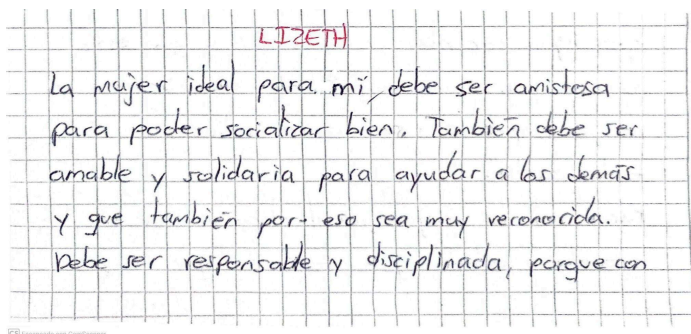 LIZETH
La mujer ideal para mí, debe ser amistosa
para poder socializar bien. También debe ser
amable y solidaria para ayudar a los demás
y que también por eso sea muy reconocida.
Debe ser responsable y disciplinada, porque con